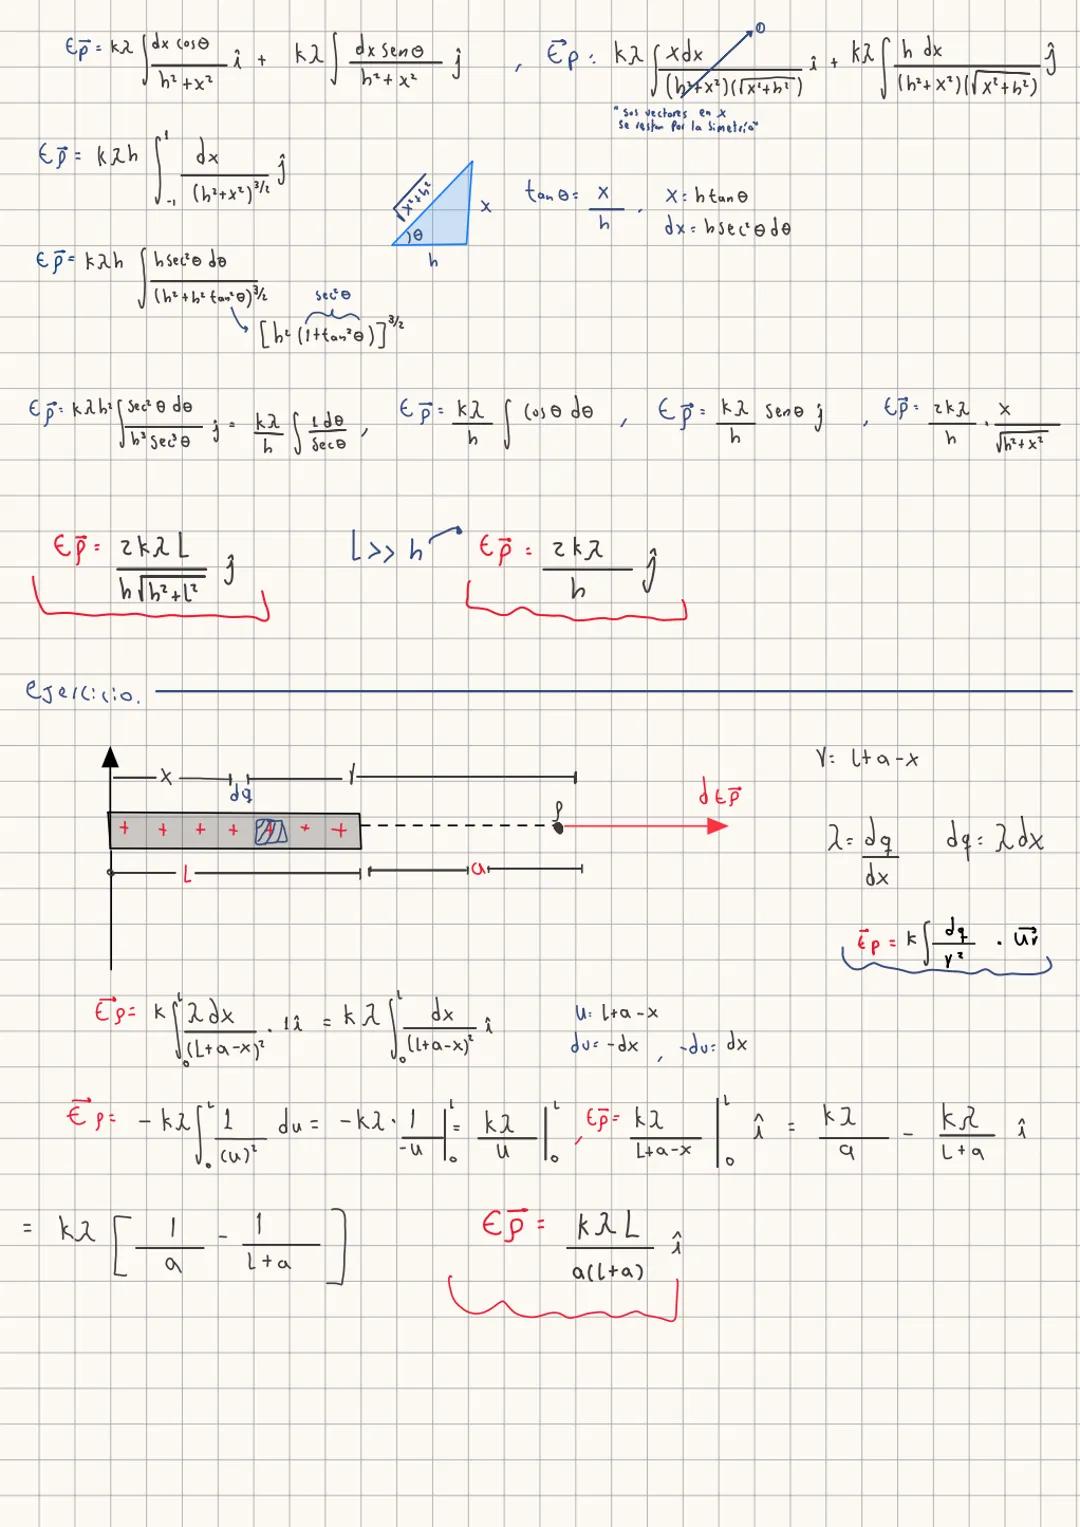 Ep⃗ = kλ ∫ dx cosθ / h²+x² î + kλ ∫ dx senθ / h²+x² ĵ , E⃗p: kλ ∫ xdx / (h²+x²)(√x²+h²) î + kλ ∫ h dx / (h²+x²)(√x²+h²) ĵ
0
"sus vectores en x
se restan por la simetría"
Ep⃗ = kλh ∫₋₁¹ dx / (h²+x²)^3/2 ĵ
√x²+h² x θ h
tanθ: x/h . x: h tanθ
dx: h sec²θ dθ
Ep⃗ = kλh ∫ h sec²θ dθ / (h²+h² tan²θ)^3/2
sec²θ
[h² (1+tan²θ)]^3/2
Ep⃗: kλh² ∫ sec²θ dθ / h³ sec³θ ĵ = kλ/h ∫ 1 dθ / secθ , Ep⃗ = kλ/h ∫ cosθ dθ , Ep⃗ = kλ/h senθ ĵ , Ep⃗ = 2kλ/h . x / √h²+x²
Ep⃗ = 2kλL / h√h²+L² ĵ L >> h Ep⃗ = 2kλ / h ĵ
ejercicio.
x r
dq
+ + + + + + +
P
dEp⃗
L a
r: L+a-x
λ = dq/dx dq: λdx
E⃗p = k ∫ dq/r² . ur⃗
E⃗p = k ∫₀ᴸ λdx / (L+a-x)² . 1î = kλ ∫₀ᴸ dx / (L+a-x)² î
u: L+a-x
du = -dx , -du: dx
E⃗p = -kλ ∫₀ᴸ 1/(u)² du = -kλ . 1/-u |₀ᴸ = kλ/u |₀ᴸ , Ep⃗ = kλ / L+a-x |₀ᴸ î = kλ/a - kλ / L+a î
= kλ [ 1/a - 1 / L+a ]
Ep⃗ = kλL / a(L+a) î